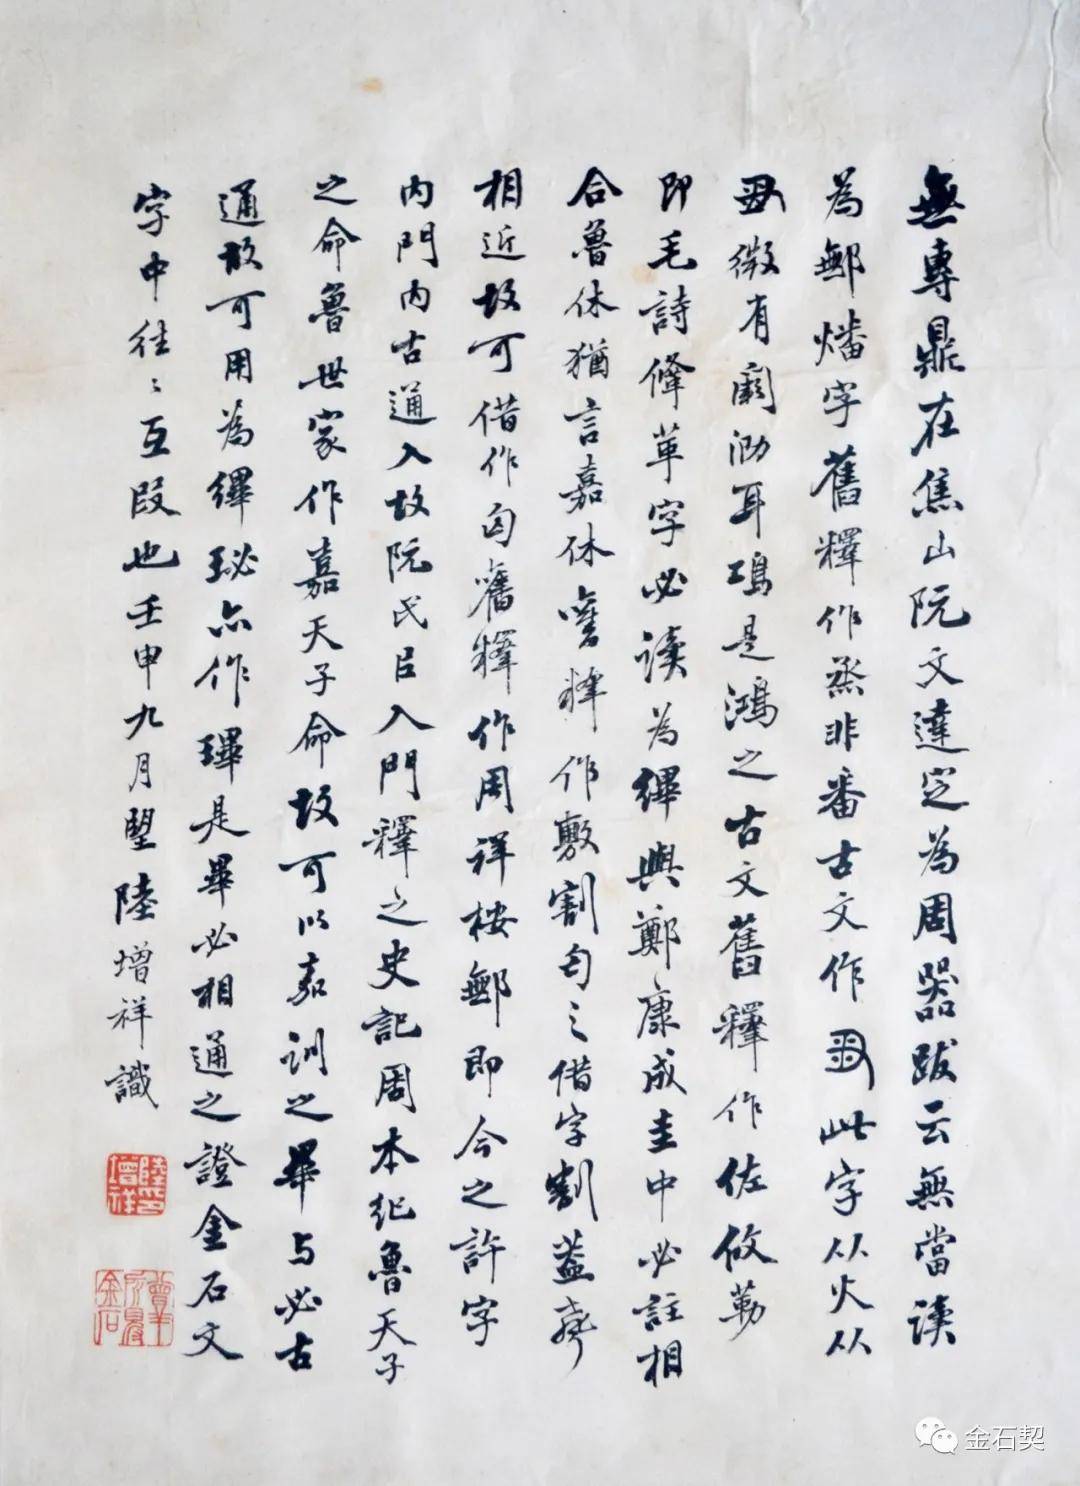 無專鼎在焦山阮文達定為周器跋云無當讀
為鄦燔字舊釋作烝非番古文作此字从火从
微有剛泐耳鴅是鴻之古文舊釋作佐攸勒
即毛詩鞗革字必讀為縪與鄭康成圭中必註相
合魯休猶言嘉休舊釋作敷割匄之借字割蓋聲
相近故可借作匄舊釋作周祥桉鄦即今之許字
內門內古通入故阮氏目入門釋之史記周本紀魯天子
之命魯世家作嘉天子命故可以嘉訓之畢与必古
通故可用為縪珌亦作琿是畢必相通之證金石文
字中往〻互叚也壬申九月朢陸增祥識
陸增祥印
金石
金石契